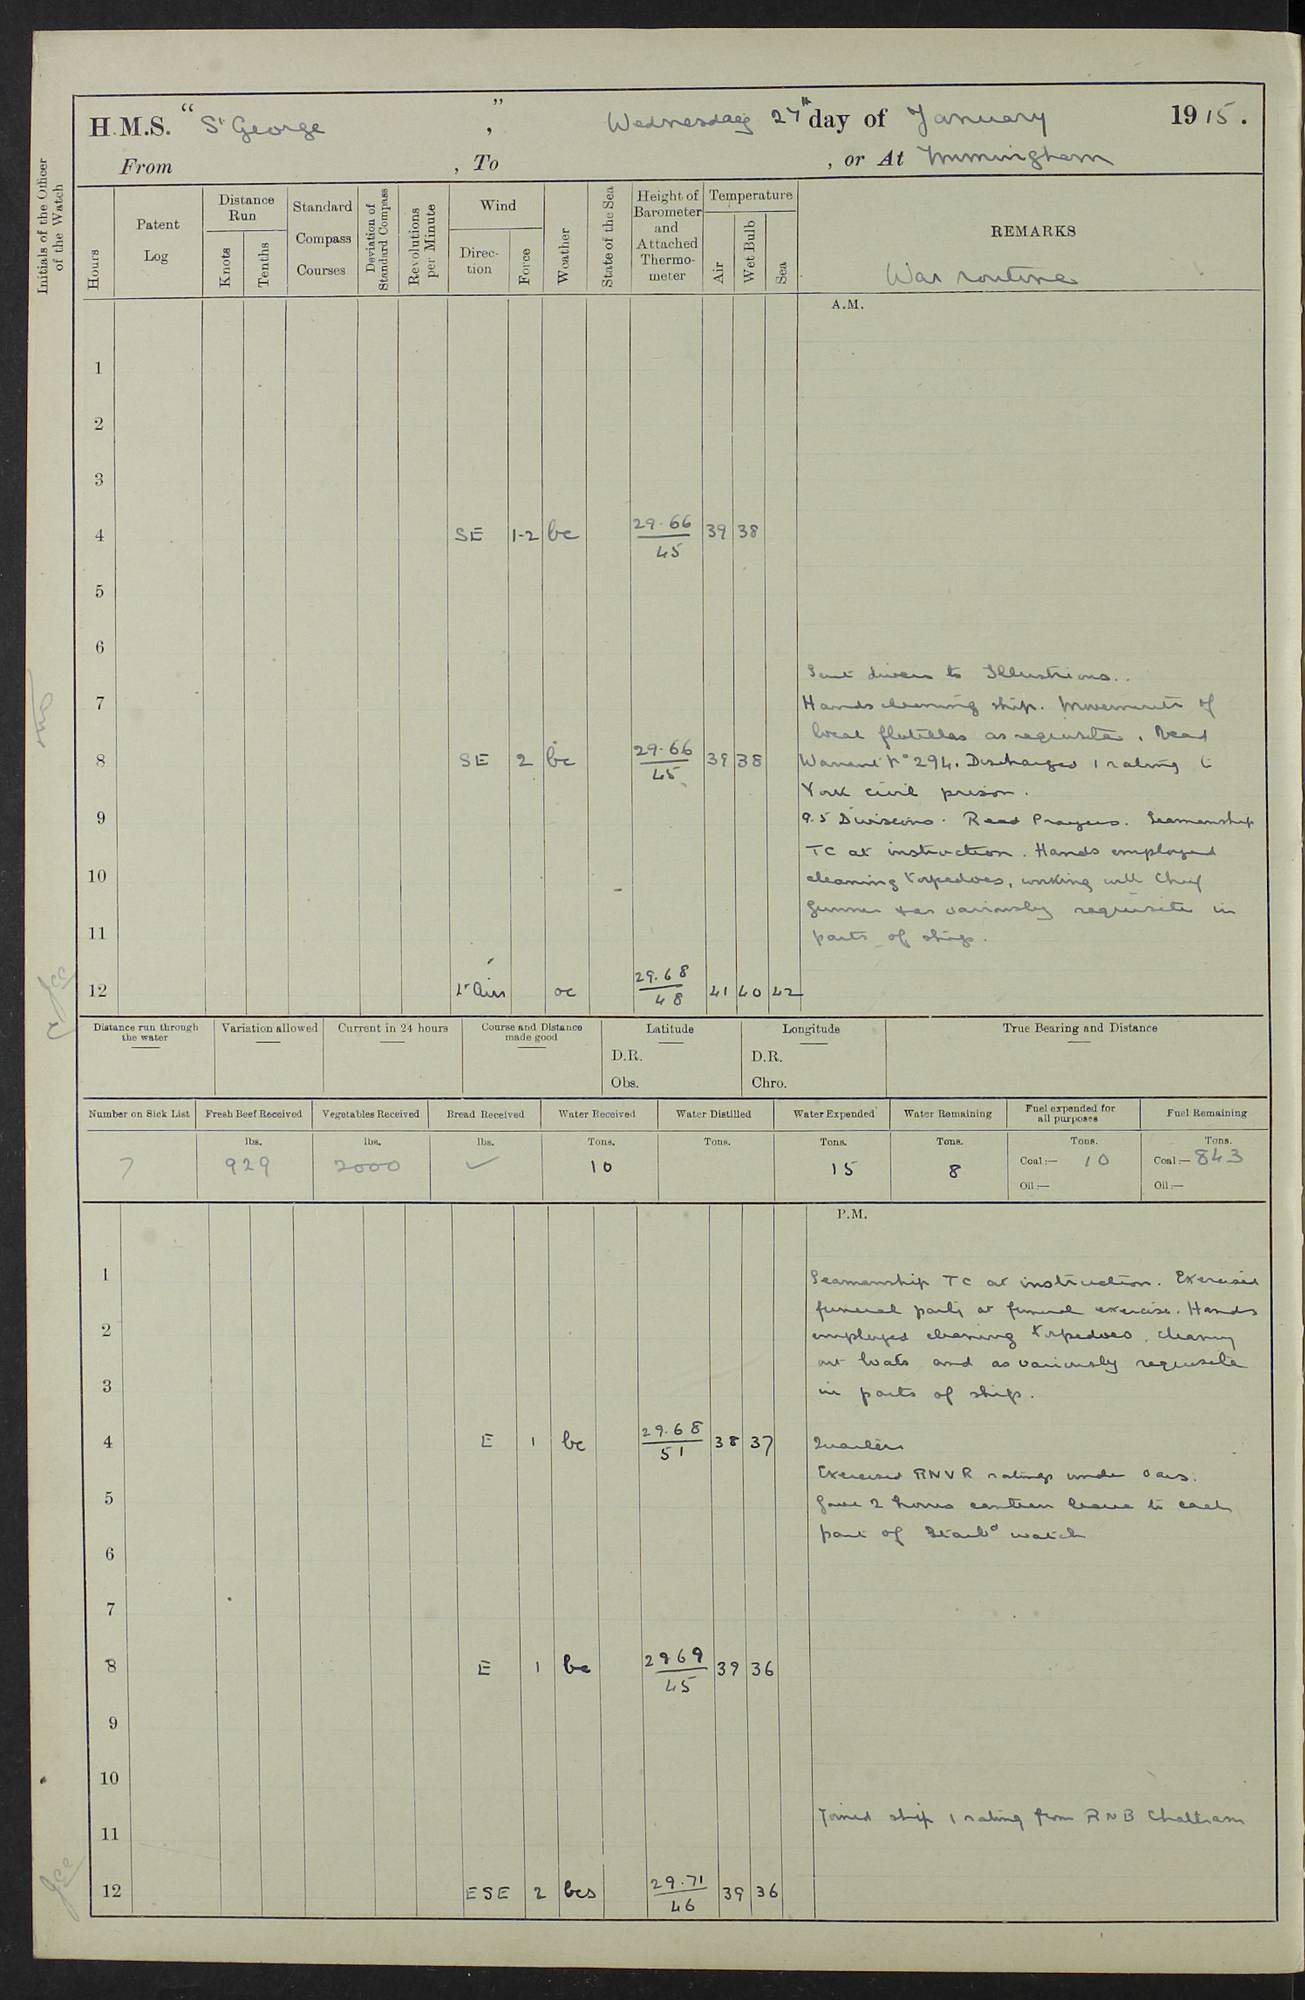 H.M.S. "St George", Wednesday 27th day of January 1915.
From , To , or At Immingham
Initials of the Officer of the Watch
Hours
Patent Log
Distance Run
Knots
Tenths
Standard Compass Courses
Deviation of Standard Compass
Revolutions per Minute
Wind
Direction
Force
Weather
State of the Sea
Height of Barometer and Attached Thermometer
Temperature
Air
Wet Bulb
Sea
REMARKS
War routine
A.M.
1
2
3
4 SE 1-2 bc 29.66/45 39 38
5
6
Sent divers to Illustrious.
7 Hands cleaning ship. Movements of
local flotillas as requisite. Read
8 SE 2 bc 29.66/45 39 38 Warrant No 294. Discharged 1 rating to
York civil prison.
9 9.5 Divisions. Read Prayers. Seamanship
TC at instruction. Hands employed
10 cleaning torpedoes, working with Chief
Gunner & as variously requisite in
11 parts of ship.
12 Lt Airs oc 29.68/48 41 40 42
Distance run through the water
Variation allowed
Current in 24 hours
Course and Distance made good
Latitude
D.R.
Obs.
Longitude
D.R.
Chro.
True Bearing and Distance
Number on Sick List
Fresh Beef Received
Vegetables Received
Bread Received
Water Received
Water Distilled
Water Expended
Water Remaining
Fuel expended for all purposes
Fuel Remaining
lbs. lbs. lbs. Tons. Tons. Tons. Tons. Tons. Tons.
7 929 2000 ✓ 10 15 8 Coal:— 10 Coal:— 843
Oil:— Oil:—
P.M.
1 Seamanship TC at instruction. Exercised
funeral party at funeral exercise. Hands
2 employed cleaning torpedoes, cleaning
out boats and as variously requisite
3 in parts of ship.
4 E 1 bc 29.68/51 38 37 Quarters
Exercised RNVR ratings under oars.
5 Gave 2 hours canteen leave to each
part of Starbd watch
6
7
8 E 1 bc 29 69/45 39 36
9
10
Joined ship 1 rating from RNB Chatham
11
12 ESE 2 bcs 29.71/46 39 36